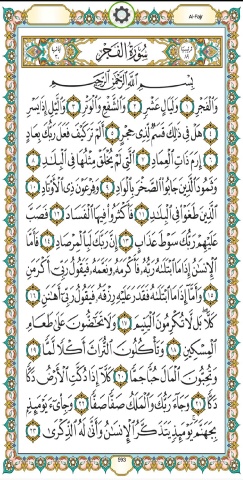 Al-Fajr
سُورَةُ الفَجْرِ
بِسْمِ اللَّهِ الرَّحْمَٰنِ الرَّحِيمِ
وَالْفَجْرِ ١ وَلَيَالٍ عَشْرٍ ٢ وَالشَّفْعِ وَالْوَتْرِ ٣ وَاللَّيْلِ إِذَا يَسْرِ
٤ هَلْ فِي ذَٰلِكَ قَسَمٌ لِّذِي حِجْرٍ ٥ أَلَمْ تَرَ كَيْفَ فَعَلَ رَبُّكَ بِعَادٍ
٦ إِرَمَ ذَاتِ الْعِمَادِ ٧ الَّتِي لَمْ يُخْلَقْ مِثْلُهَا فِي الْبِلَادِ ٨
وَثَمُودَ الَّذِينَ جَابُوا الصَّخْرَ بِالْوَادِ ٩ وَفِرْعَوْنَ ذِي الْأَوْتَادِ ١٠
الَّذِينَ طَغَوْا فِي الْبِلَادِ ١١ فَأَكْثَرُوا فِيهَا الْفَسَادَ ١٢ فَصَبَّ
عَلَيْهِمْ رَبُّكَ سَوْطَ عَذَابٍ ١٣ إِنَّ رَبَّكَ لَبِالْمِرْصَادِ ١٤ فَأَمَّا
الْإِنسَانُ إِذَا مَا ابْتَلَاهُ رَبُّهُ فَأَكْرَمَهُ وَنَعَّمَهُ فَيَقُولُ رَبِّي أَكْرَمَنِ
١٥ وَأَمَّا إِذَا مَا ابْتَلَاهُ فَقَدَرَ عَلَيْهِ رِزْقَهُ فَيَقُولُ رَبِّي أَهَانَنِ ١٦
كَلَّا بَل لَّا تُكْرِمُونَ الْيَتِيمَ ١٧ وَلَا تَحَاضُّونَ عَلَىٰ طَعَامِ
الْمِسْكِينِ ١٨ وَتَأْكُلُونَ التُّرَاثَ أَكْلًا لَّمًّا ١٩
وَتُحِبُّونَ الْمَالَ حُبًّا جَمًّا ٢٠ كَلَّا إِذَا دُكَّتِ الْأَرْضُ دَكًّا
دَكًّا ٢١ وَجَاءَ رَبُّكَ وَالْمَلَكُ صَفًّا صَفًّا ٢٢ وَجِيءَ يَوْمَئِذٍ
بِجَهَنَّمَ يَوْمَئِذٍ يَتَذَكَّرُ الْإِنسَانُ وَأَنَّىٰ لَهُ الذِّكْرَىٰ ٢٣
593